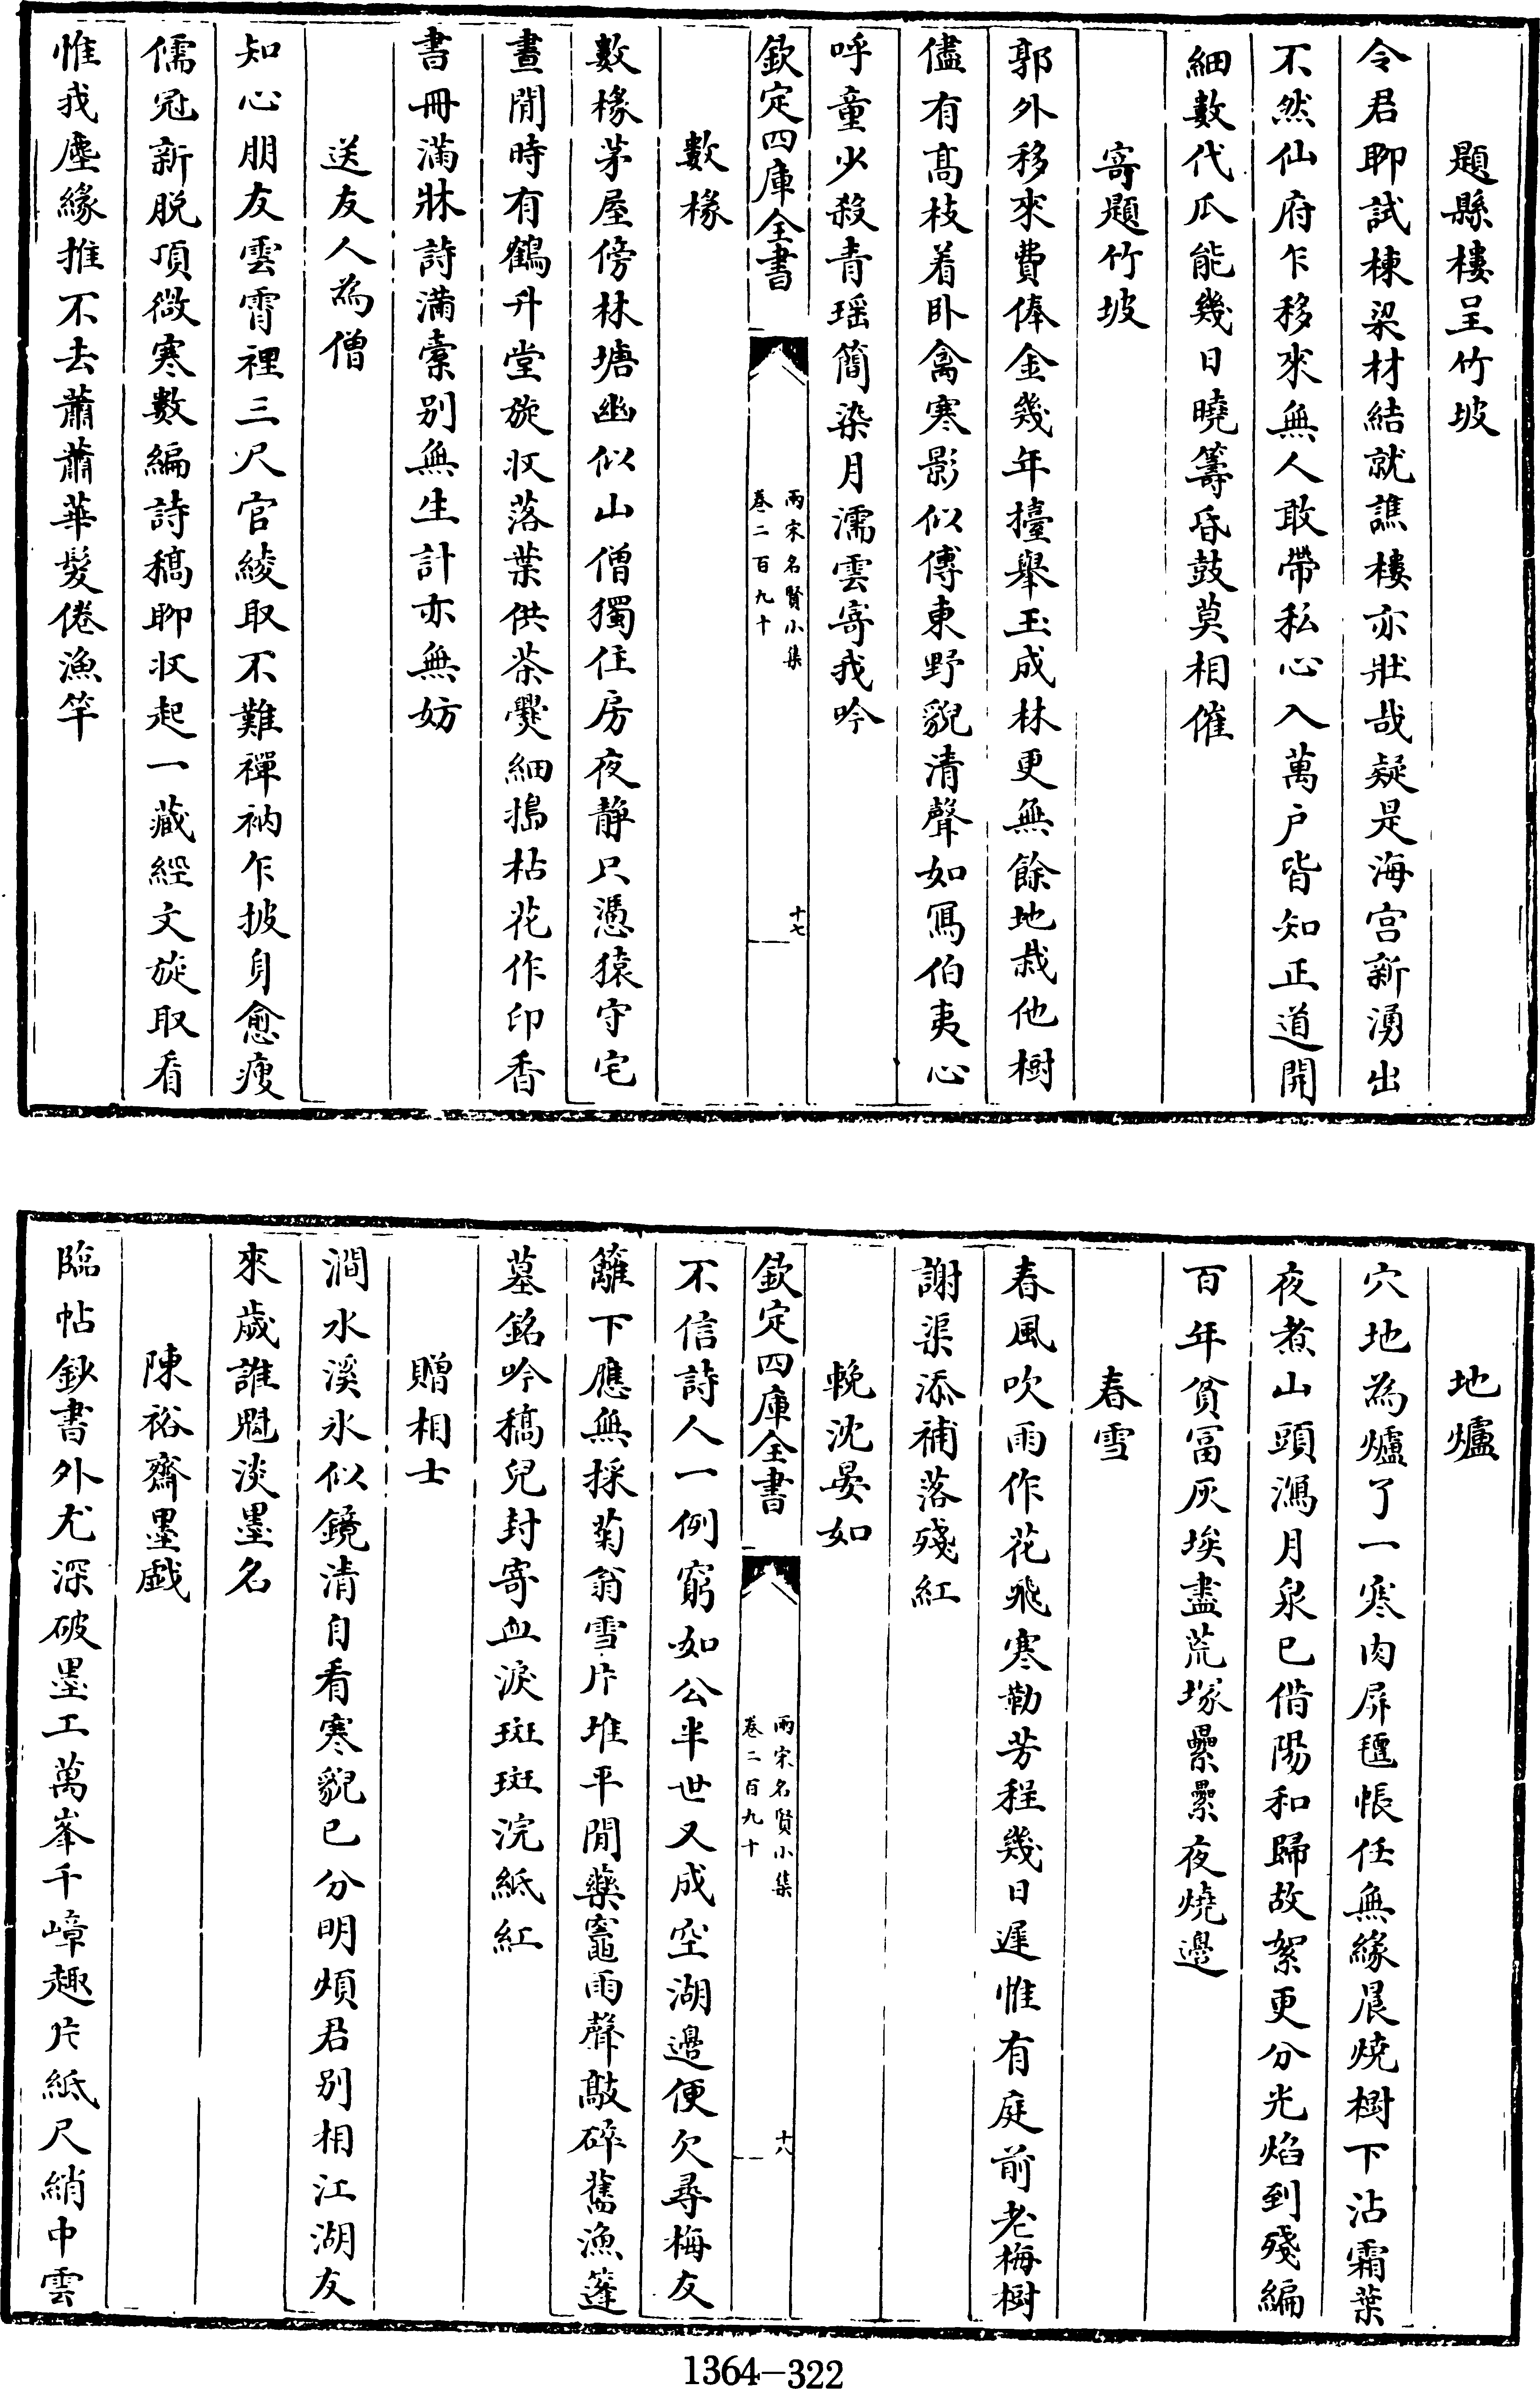 題縣樓呈竹坡
令君聊試棟梁材結就譙樓亦壯哉疑是海宫新湧出
不然仙府乍移來無人敢帶私心入萬户皆知正道開
細數代瓜能幾日曉籌昏鼓莫相催
寄題竹坡
郭外移來費俸金幾年擡舉玉成林更無餘地栽他樹
儘有髙枝着卧禽寒影似傳東野貌清聲如冩伯夷心
呼童少殺青瑶簡染月濡雲寄我吟
欽定四庫全書
兩宋名賢小集
卷二百九十
十七
數椽
數椽茅屋傍林塘幽似山僧獨住房夜静只憑猿守宅
晝閒時有鶴升堂旋収落葉供茶爨細搗枯花作印香
書冊滿牀詩滿槖别無生計亦無妨
送友人為僧
知心朋友雲霄裡三尺官綾取不難禪衲乍披身愈瘦
儒冠新脱頂微寒數編詩稿聊収起一藏經文旋取看
惟我塵緣推不去蕭蕭華髮倦漁竿
地爐
穴地為爐了一寒肉屏氊帳任無緣晨燒樹下沾霜葉
夜煮山頭漏月泉已借陽和歸故絮更分光焰到殘編
百年貧富灰埃盡荒塚纍纍夜燒邊
春雪
春風吹雨作花飛寒勒芳程幾日遲惟有庭前老梅樹
謝渠添補落殘紅
輓沈晏如
欽定四庫全書
兩宋名賢小集
卷二百九十
十八
不信詩人一例窮如公半世又成空湖邊便欠尋梅友
籬下應無採菊翁雪片堆平閒藥竈雨聲敲碎舊漁篷
墓銘吟稿兒封寄血淚斑斑浣紙紅
贈相士
澗水溪氷似鏡清自看寒貌已分明煩君别相江湖友
來歲誰魁淡墨名
陳裕齋墨戯
臨帖鈔書外尤深破墨工萬峯千嶂趣片紙尺綃中雲
1364-322